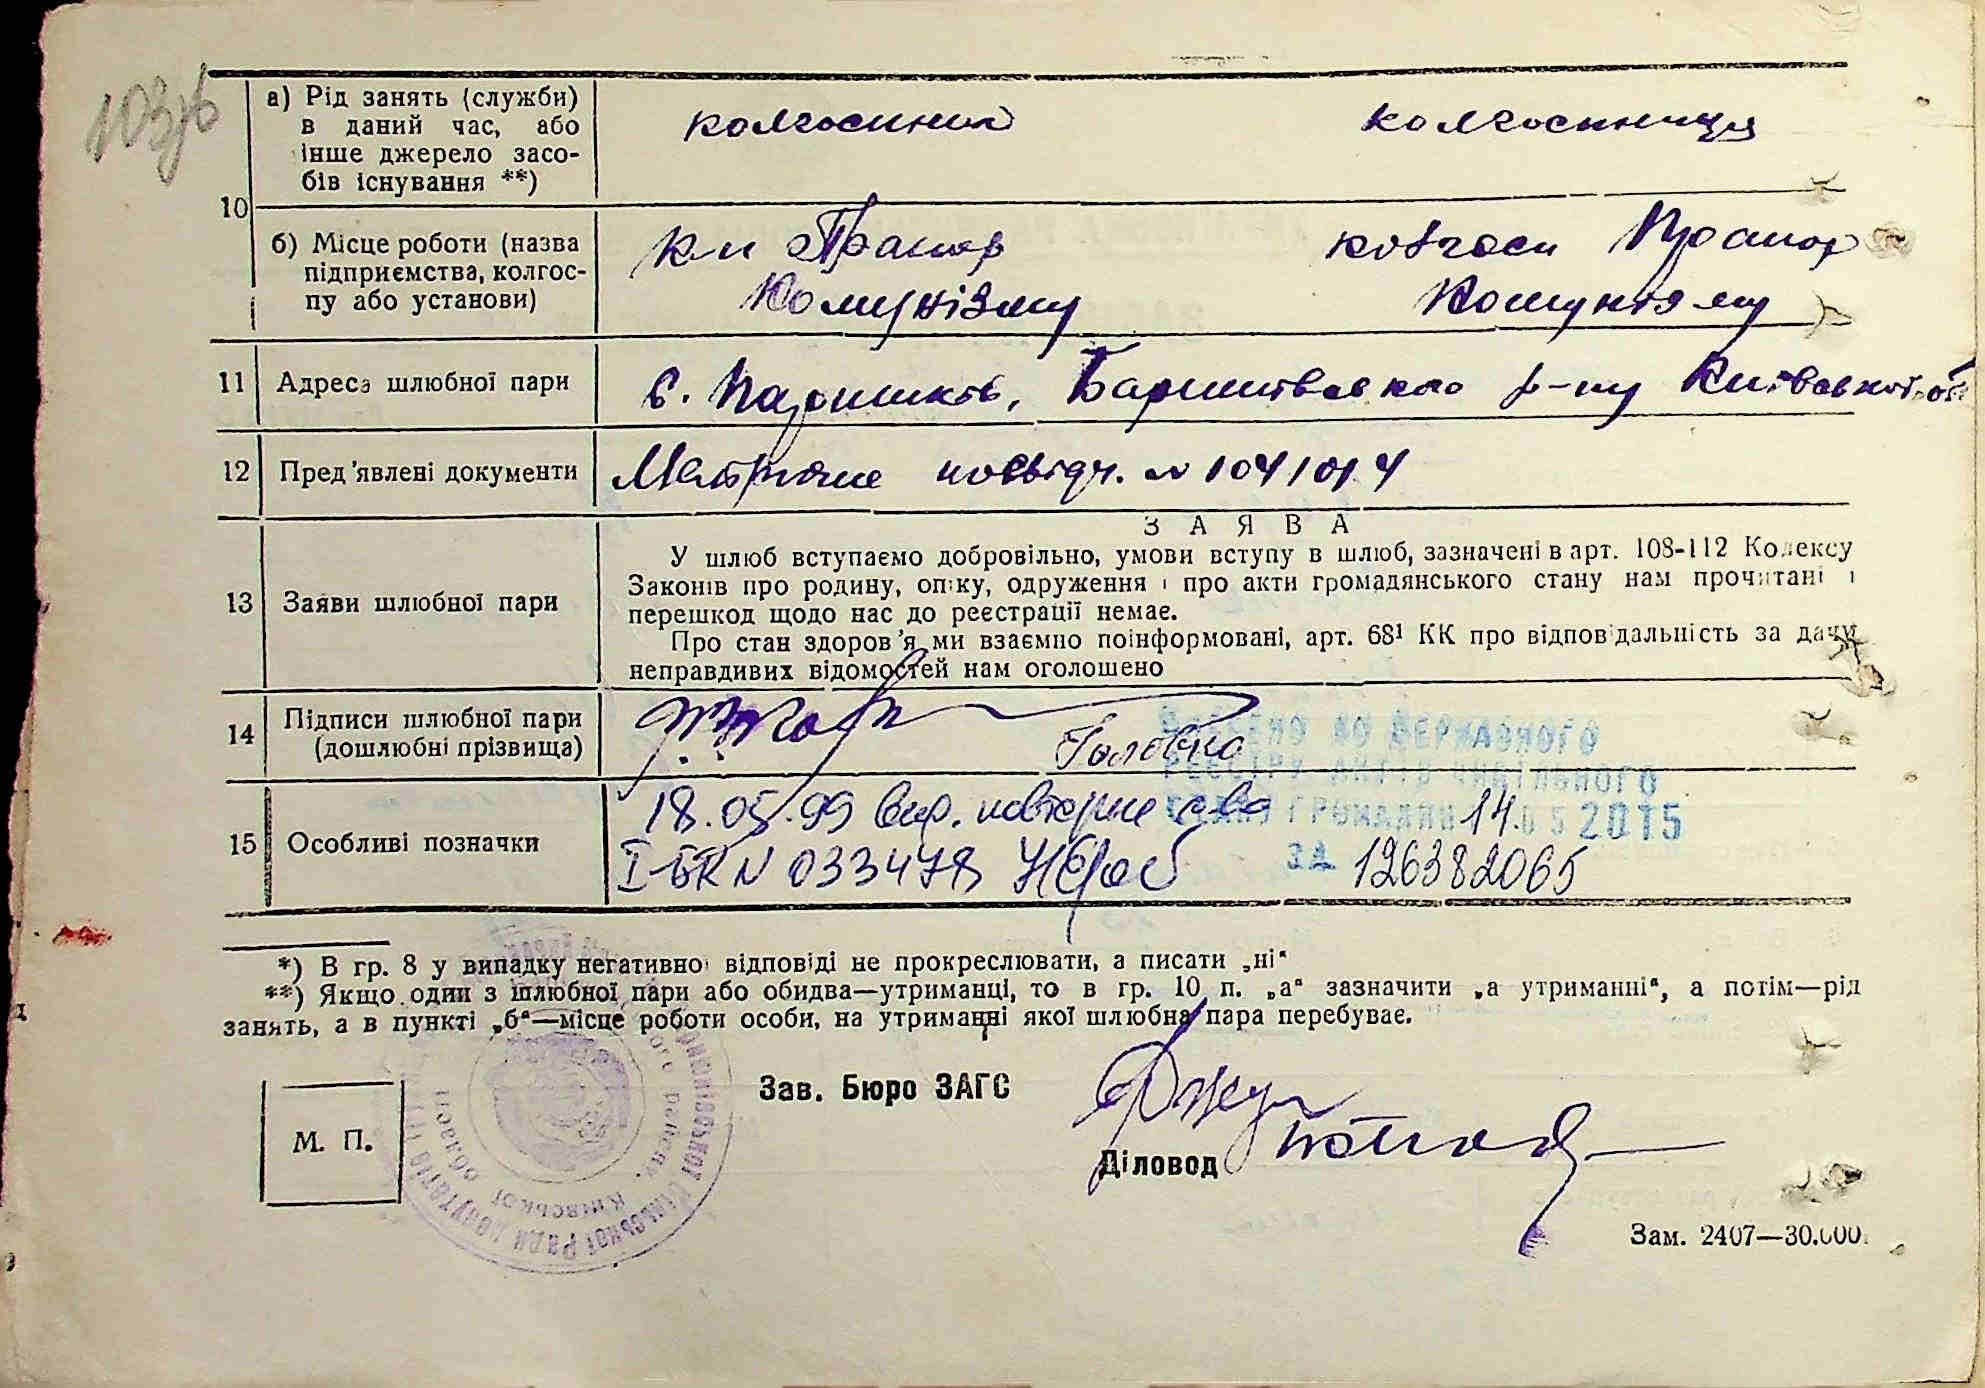 103/6
10
а) Рід занять (служби)
в даний час, або
інше джерело засо-
бів існування **)
колгоспник
колгоспниця
б) Місце роботи (назва
підприємства, колгос-
пу або установи)
Прапор
Комунізму
колгосп Прапор
Комунізму
11 Адреса шлюбної пари
с. Паришків, Баришівського р-ну Київської об
12 Пред'явлені документи
Метричне посвідч. №
13 Заяви шлюбної пари
ЗАЯВА
У шлюб вступаємо добровільно, умови вступу в шлюб, зазначені в арт. 108-112 Кодексу
Законів про родину, опіку, одруження і про акти громадянського стану нам прочитані і
перешкод щодо нас до реєстрації немає.
Про стан здоров'я ми взаємно поінформовані, арт. 68¹ КК про відповідальність за дачу
неправдивих відомостей нам оголошено
14 Підписи шлюбної пари
(дошлюбні прізвища)
Головко
ВНЕСЕНО ДО ДЕРЖАВНОГО
РЕЄСТРУ АКТІВ ЦИВІЛЬНОГО
СТАНУ ГРОМАДЯН 14.05 2015
ЗА 126382065
15 Особливі позначки
18.05.99 вид. повторне св-во
І-БК N 033478
*) В гр. 8 у випадку негативної відповіді не прокреслювати, а писати „ні“
**) Якщо один з шлюбної пари або обидва—утриманці, то в гр. 10 п. „а“ зазначити „а утриманні“, а потім—рід
занять, а в пункті „б“—місце роботи особи, на утриманні якої шлюбна пара перебуває.
М. П.
Зав. Бюро ЗАГС
Діловод
Зам. 2407—30.000